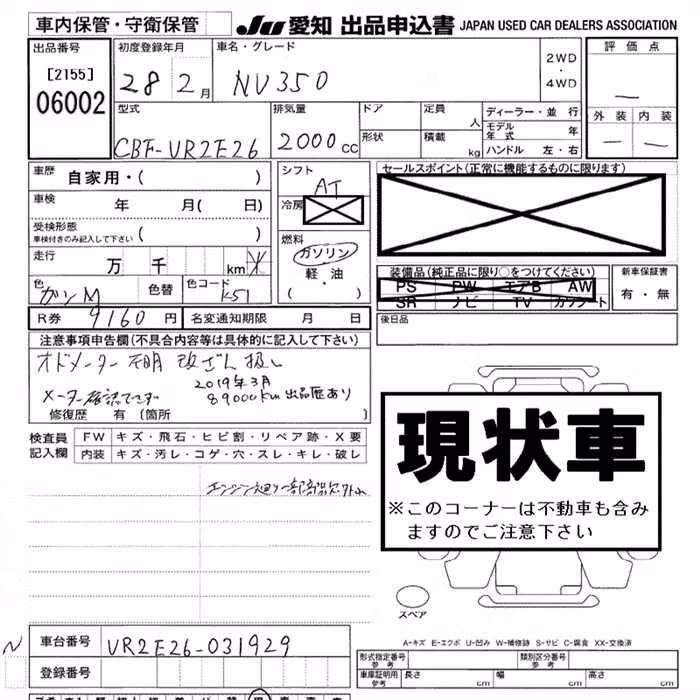 車内保管・守衛保管
JU 愛知 出品申込書 JAPAN USED CAR DEALERS ASSOCIATION
出品番号
[2155]
06002
初度登録年月
28 2月
車名・グレード
NV350
2WD
・
4WD
評価点
―
外装 内装
― ―
型式
CBF-VR2E26
排気量
2000cc
ドア
形状
定員 人
積載 kg
ディーラー・並行
モデル年式 年
ハンドル 左・右
車歴 自家用・( )
車検 年 月( 日)
受検形態
車検付きのみ記入して下さい ( )
走行 万 千 km ※
色 ガンM 色替 色コード K51
シフト AT
冷房
燃料
ガソリン
軽・油
( ・ )
セールスポイント(正常に機能するものに限ります)
装備品(純正品に限り○をつけてください)
PS PW エアB AW
SR ナビ TV カワシート
新車保証書
有・無
R券 9160円
名変通知期限 月 日
後日品
注意事項申告欄(不具合内容等は具体的に記入して下さい)
オドメーター不明 改ざん扱い
2019年3月
メーター確認できず 89000km出品歴あり
修復歴 有 (箇所 )
検査員記入欄
FW キズ・飛石・ヒビ割・リペア跡・X要
内装 キズ・汚レ・コゲ・穴・スレ・キレ・破レ
エンジン廻り一部部品欠
現状車
※このコーナーは不動車も含みますのでご注意下さい
スペア
A-キズ E-エクボ U-凹み W-補修跡 S-サビ C-腐食 XX-交換済
N
車台番号 VR2E26-031929
登録番号
形式指定番号 参考
類別区分番号 参考
車庫証明用 参考
長さ cm 幅 cm 高さ cm